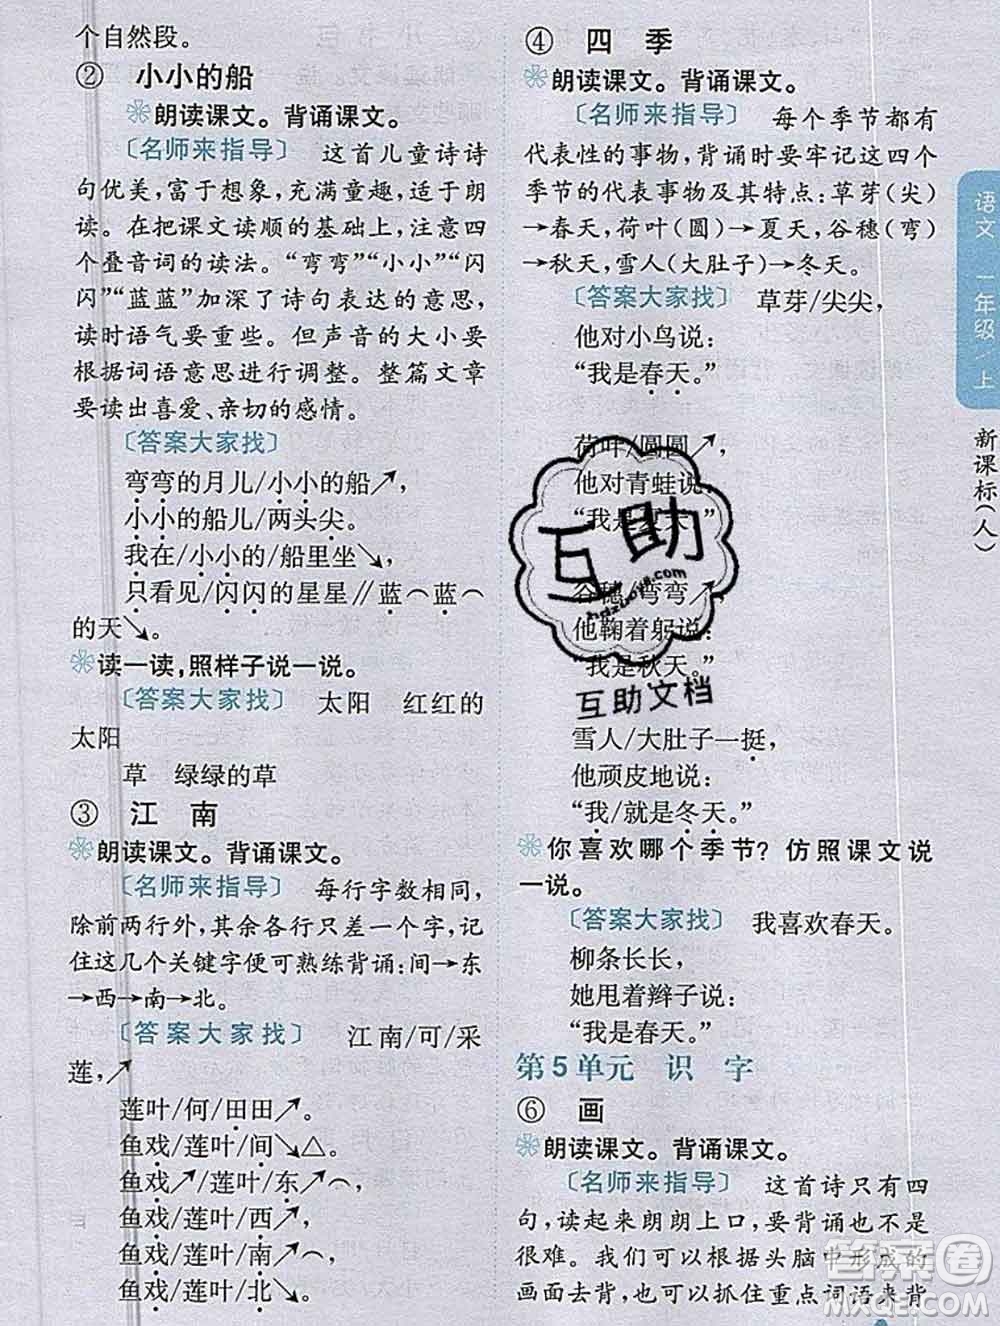 个自然段。
② 小小的船
朗读课文。背诵课文。
〔名师来指导〕 这首儿童诗诗
句优美,富于想象,充满童趣,适于朗
读。在把课文读顺的基础上,注意四
个叠音词的读法。“弯弯”“小小”“闪
闪”“蓝蓝”加深了诗句表达的意思,
读时语气要重些。但声音的大小要
根据词语意思进行调整。整篇文章
要读出喜爱、亲切的感情。
〔答案大家找〕
弯弯的月儿/小小的船↗,
小小的船儿/两头尖。
我在/小小的/船里坐↘,
只看见/闪闪的星星∥蓝⌒蓝⌒
的天↘。
读一读,照样子说一说。
〔答案大家找〕 太阳 红红的
太阳
草 绿绿的草
③ 江 南
朗读课文。背诵课文。
〔名师来指导〕 每行字数相同,
除前两行外,其余各行只差一个字,记
住这几个关键字便可熟练背诵:间→东
→西→南→北。
〔答案大家找〕 江南/可/采
莲,↗
莲叶/何/田田↗。
鱼戏/莲叶/间↘△。
鱼戏↗/莲叶/东↗⌒。
鱼戏/莲叶/西↗⌒。
鱼戏/莲叶/南↗⌒。
鱼戏/莲叶/北↘。
④ 四 季
朗读课文。背诵课文。
〔名师来指导〕 每个季节都有
代表性的事物,背诵时要牢记这四个
季节的代表事物及其特点:草芽(尖)
→春天,荷叶(圆)→夏天,谷穗(弯)
→秋天,雪人(大肚子)→冬天。
〔答案大家找〕 草芽/尖尖,
他对小鸟说:
“我是春天。”
荷叶/圆圆↗,
他对青蛙说:
“我是夏天。”
谷穗/弯弯↗,
他鞠着躬说:
“我是秋天。”
雪人/大肚子一挺,
他顽皮地说:
“我/就是冬天。”
你喜欢哪个季节? 仿照课文说
一说。
〔答案大家找〕 我喜欢春天。
柳条长长,
她甩着辫子说:
“我是春天。”
第5单元 识 字
⑥ 画
朗读课文。背诵课文。
〔名师来指导〕 这首诗只有四
句,读起来朗朗上口,要背诵也不是
很难。我们可以根据头脑中形成的
画面去背,也可以抓住重点词语来背
语文 一年级/上
新课标(人)
互助
hdzuoye.com
互助文档
答案圈
MXQE.COM